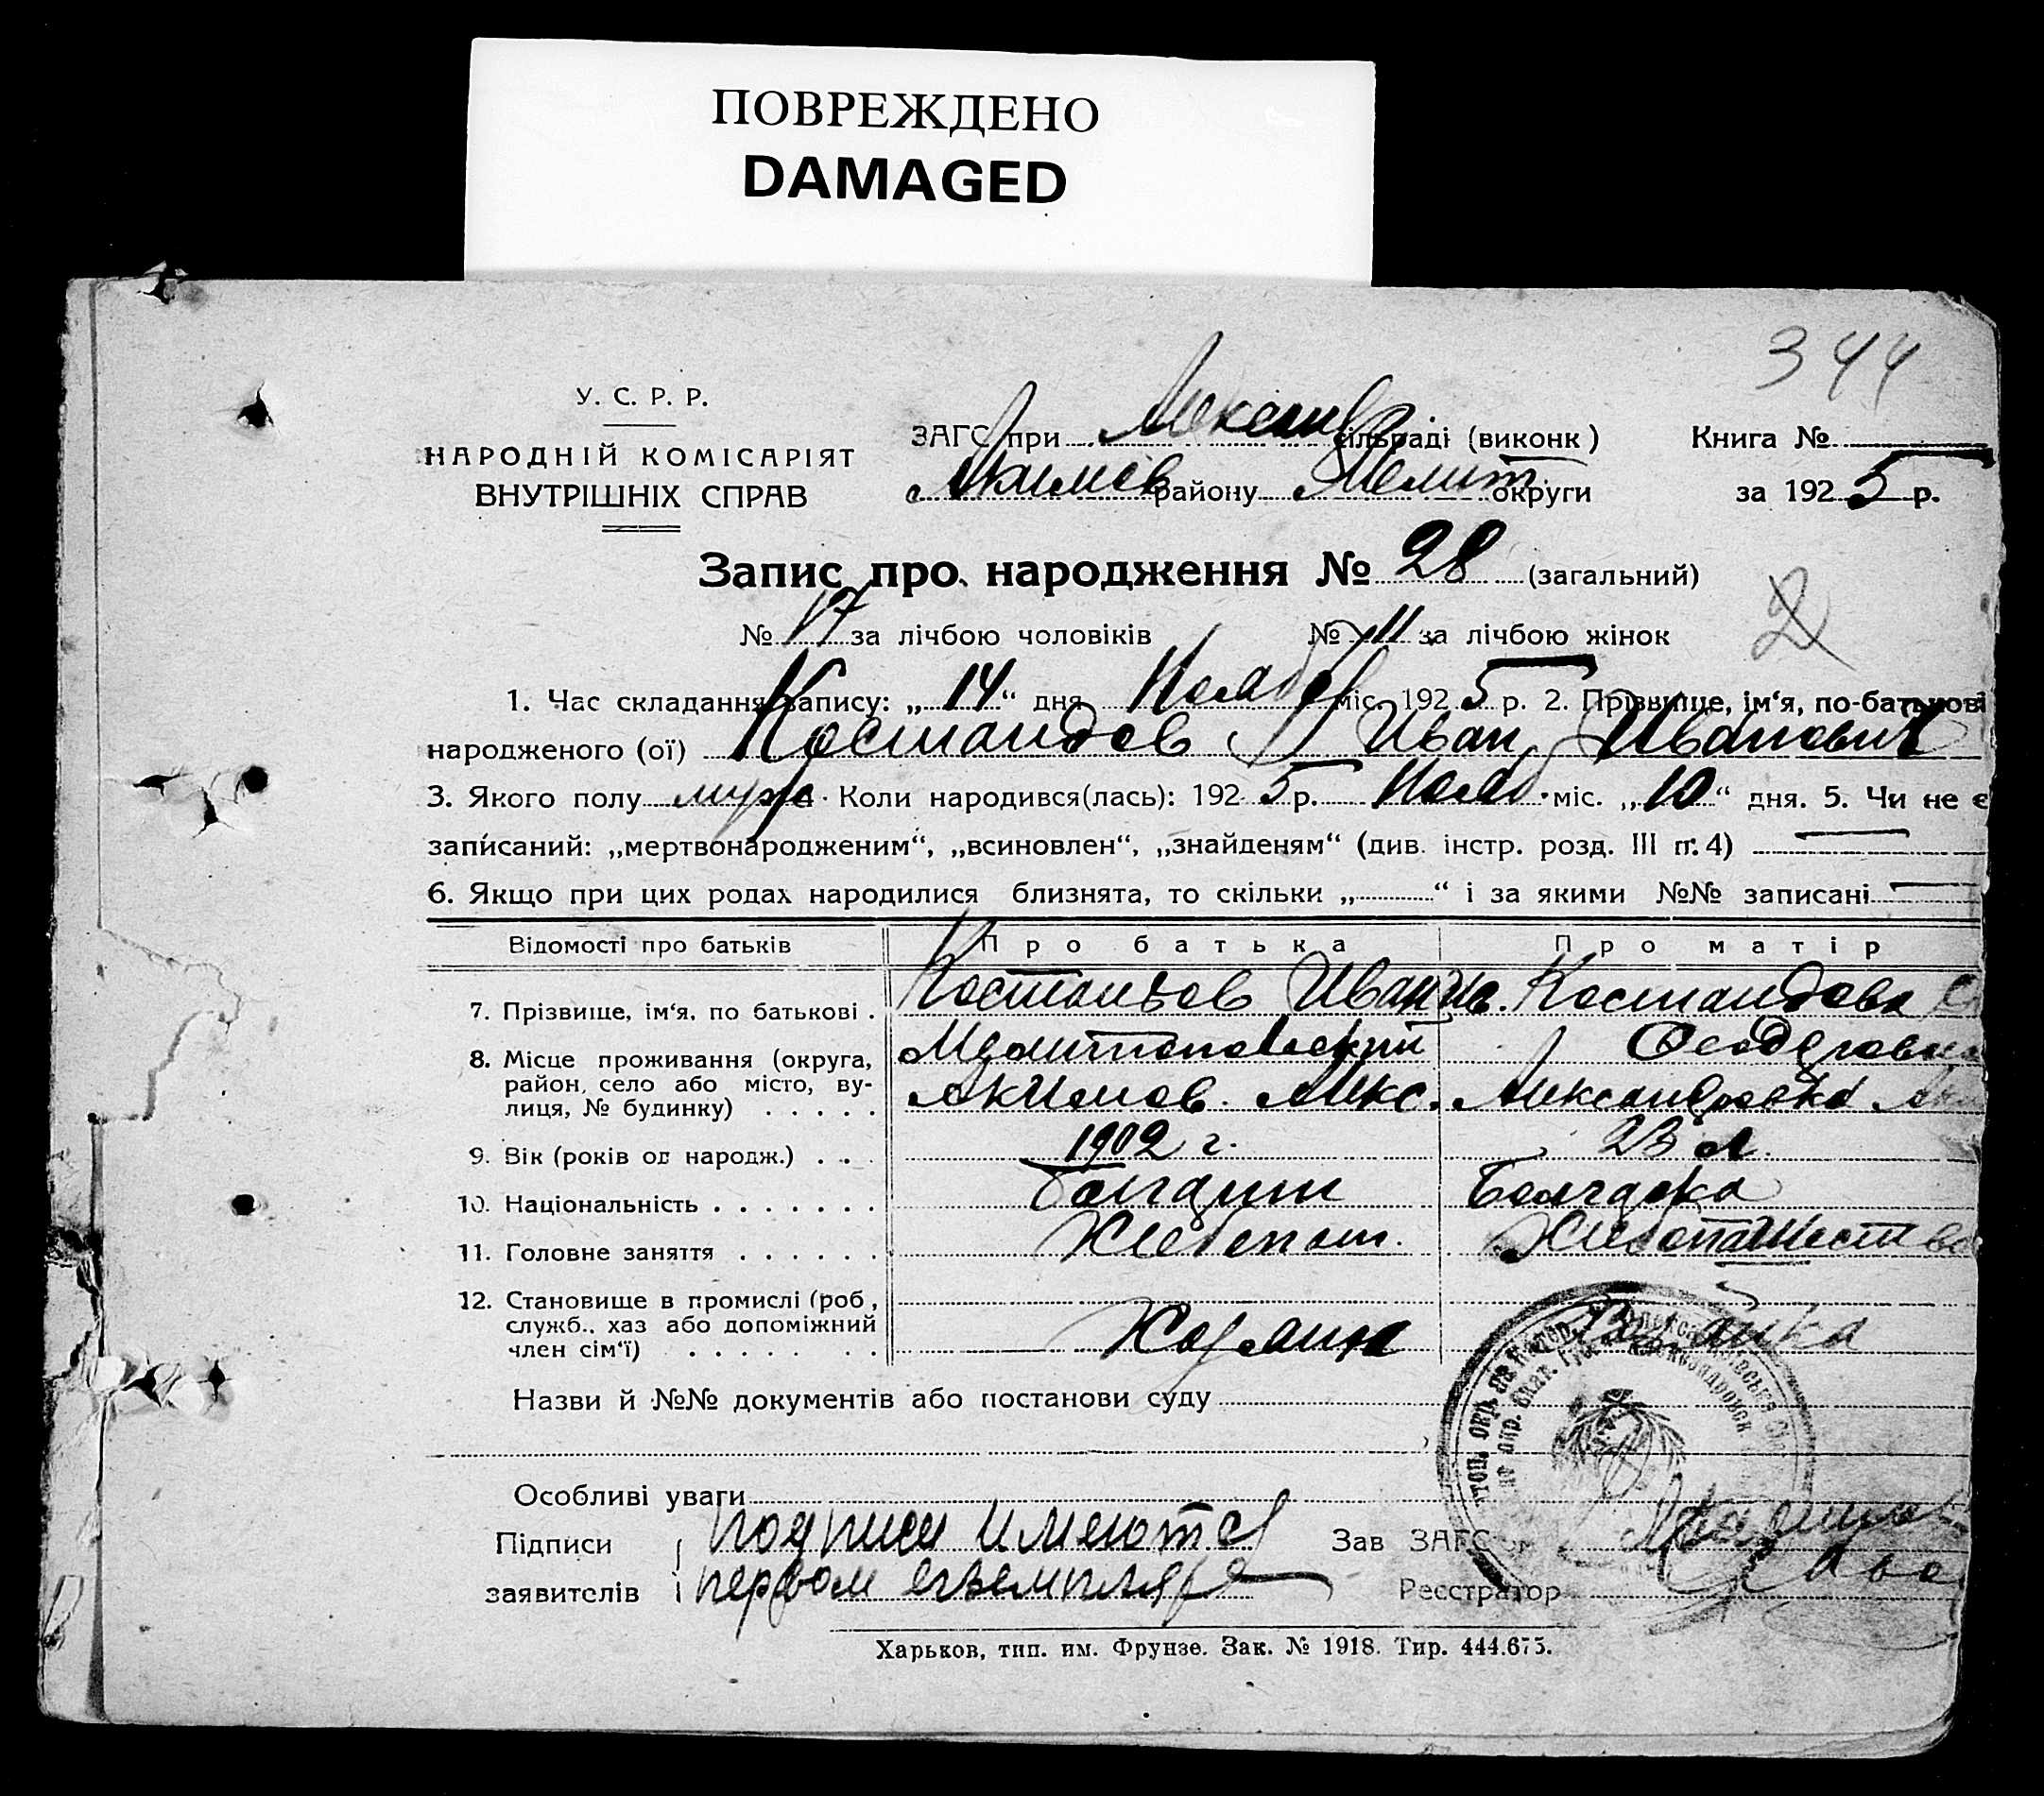 ПОВРЕЖДЕНО
DAMAGED
344
У. С. Р. Р.
НАРОДНІЙ КОМІСАРІЯТ
ВНУТРІШНІХ СПРАВ
ЗАГС при Александр сільраді (виконк) Книга №
Акимов району Мелит. округи за 1925 р.
Запис про народження № 28 (загальний)
№ 17 за лічбою чоловіків № 11 за лічбою жінок
2
1. Час складання запису: „14“ дня Нояб міс. 1925 р. 2. Прізвище, ім‘я, по-батькові
народженого (ої) Костандов Иван Иванович
3. Якого полу муж 4. Коли народився(лась): 1925 р. Нояб. міс. „10“ дня. 5. Чи не є
записаний: „мертвонародженим“, „всиновлен“, „знайденям“ (див. інстр. розд. III п. 4)
6. Якщо при цих родах народилися близнята, то скільки „ “ і за якими №№ записані
Відомості про батьків Про батька Про матір
7. Прізвище, ім‘я, по батькові . Костандов Иван Ив. Костандова
8. Місце проживання (округа, Мелитопольский Феодоровна
район, село або місто, ву-
лиця, № будинку) . . . . . Акимов. Алкс. Александровка
9. Вік (років од народж.) . . . 1902 г. 23 л.
10. Національність . . . . . . . Болгарин Болгарка
11. Головне заняття . . . . . . Хлебопаш. Хлебопашество
12. Становище в промислі (роб.,
служб., хаз або допоміжний
член сім‘ї) . . . . . . Хозяин
Назви й №№ документів або постанови суду
Особливі уваги
Підписи подписи имеются Зав ЗАГС‘ом
заявителів і первом егземпляре Реєстратор
Харьков, тип. им. Фрунзе. Зак. № 1918. Тир. 444.675.